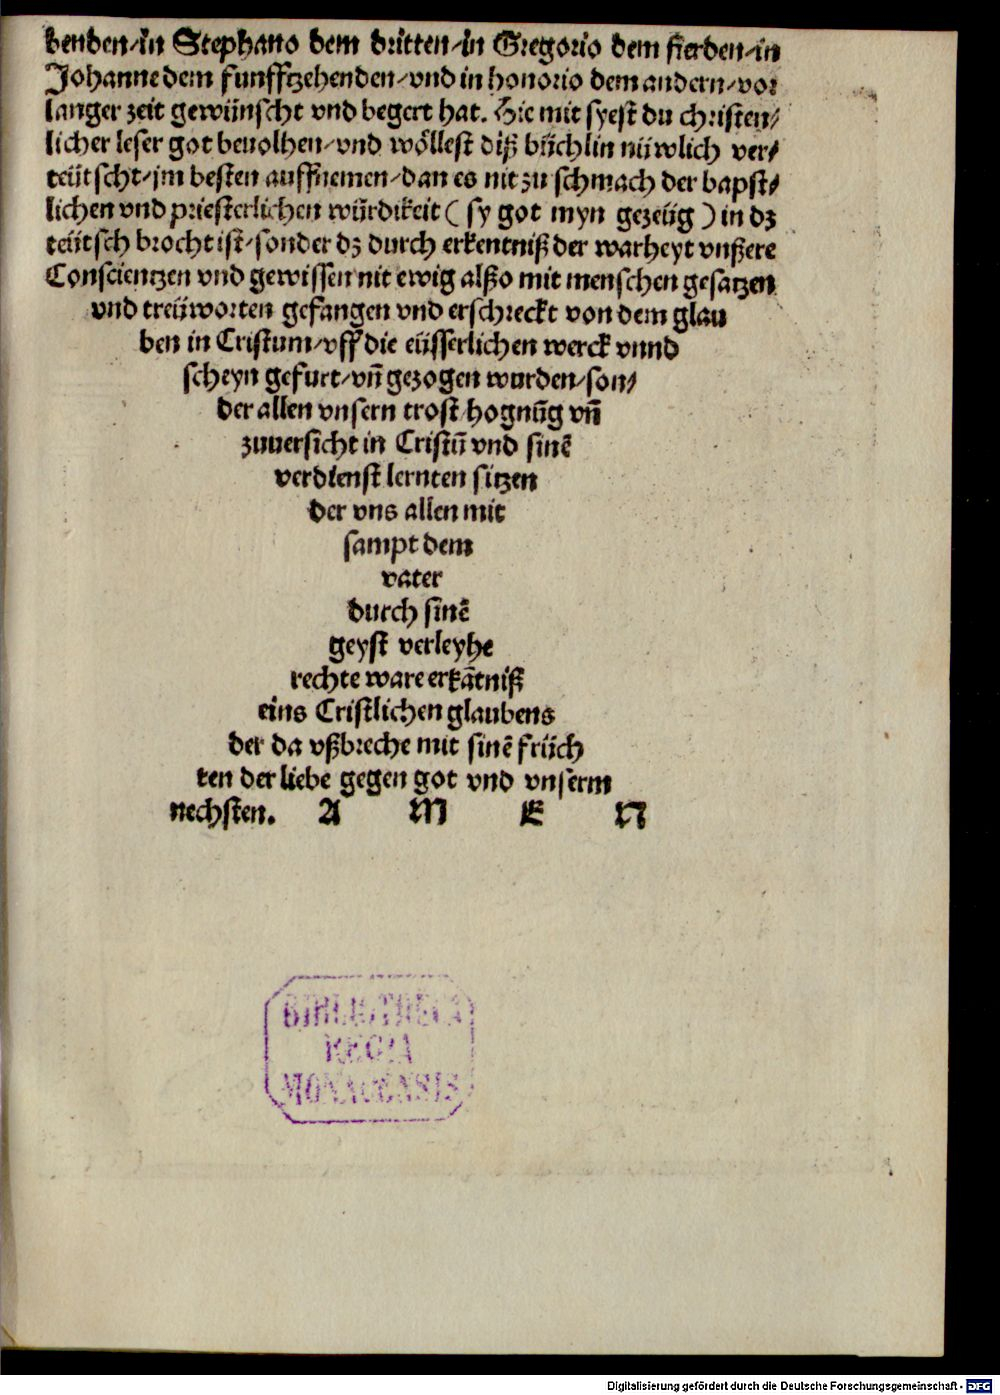 benden/in Stephano dem dritten/in Gregorio dem fierden/in
Johanne dem funfftzehenden/vnd in honorio dem andern/vor
langer zeit gewünscht vnd begert hat. Hie mit syest du christen/
licher leser got beuolhen/vnd wöllest diß büchlin nüwlich ver/
teütscht/jm besten auffnemen/dan es nit zu schmach der bapst/
lichen vnd priesterlichen würdikeit ( sy got myn gezeüg ) in dz
teütsch brocht ist/sonder dz durch erkentniß der warheyt vnßere
Conscientzen vnd gewissen nit ewig alßo mit menschen gesatzen
vnd treüworten gefangen vnd erschreckt von dem glau
ben in Cristum/vff die eüsserlichen werck vnnd
scheyn gefurt/vñ gezogen wurden/son/
der allen vnsern trost hognũg vñ
zuuersicht in Cristũ vnd sinẽ
verdienst lernten sitzen
der vns allen mit
sampt dem
vater
durch sinẽ
geyst verleyhe
rechte ware erkãtniß
eins Cristlichen glaubens
der da vßbreche mit sinẽ früch
ten der liebe gegen got vnd vnserm
nechsten. A M E N
BIBLIOTHECA
REGIA
MONACENSIS
Digitalisierung gefördert durch die Deutsche Forschungsgemeinschaft - DFG